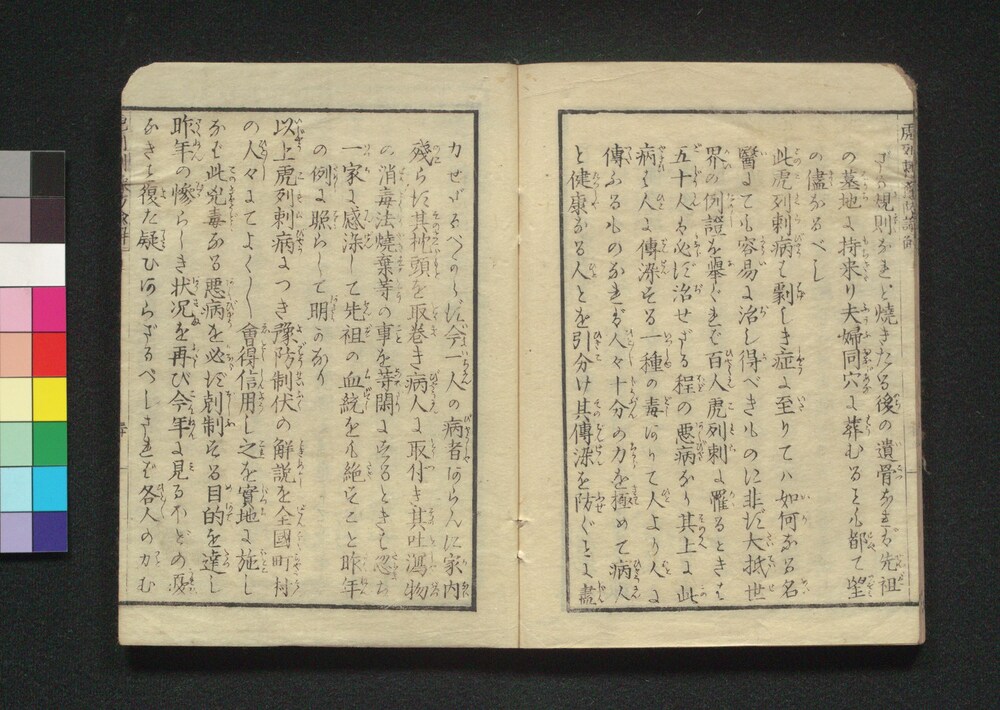 きの規則なれど焼きたる後の遺骨なれば先祖
の墓地に持来り夫婦同穴に葬むるとも都て望
の儘なるべし
此虎列刺病も劇しき症に至りてハ如何なる名
醫にても容易に治し得べきものに非ず大抵世
界の例證を擧ぐれば百人虎列刺に罹るときは
五十人も必ず治せざる程の悪病なり其上に此
病は人に傳染する一種の毒ありて人より人に
傳ふるものなれば人々十分の力を極めて病人
と健康なる人とを引分け其傳染を防ぐことに盡
力せざるべからず今一人の病者あらんに家内
残らず其枕頭を取巻き病人に取付き其吐瀉物
の消毒法焼棄等の事を等閑にするときは忽ち
一家に感染して先祖の血統をも絶すこと昨年
の例に照らして明かなり
以上虎列刺病につき豫防制伏の解説を全國町村
の人々にてよく〳〵會得信用し之を實地に施し
なば此兇毒なる悪病を必ず剋制する目的を達し
昨年の惨らしき状况を再び今年に見るほどの憂
なきも復た疑ひあらざるべしされば各人のカむ